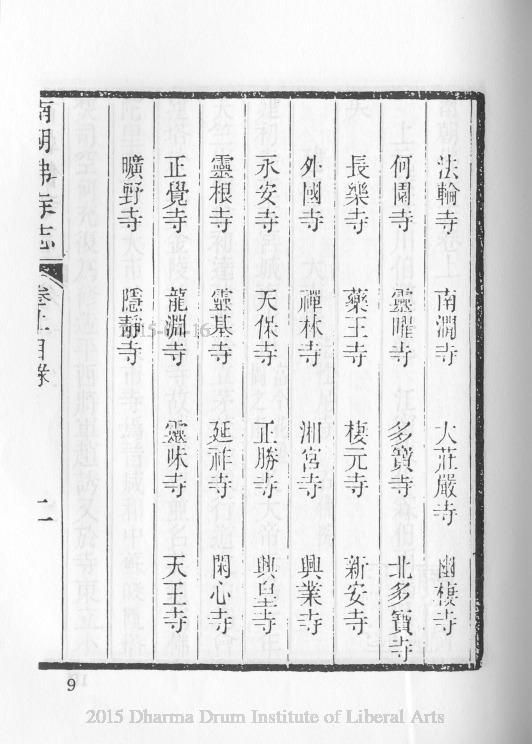 法輪寺 南澗寺 大莊嚴寺 幽棲寺
何園寺 靈曜寺 多寶寺 北多寶寺
長樂寺 藥王寺 棲元寺 新安寺
外國寺 禪林寺 湘宮寺 興業寺
永安寺 天保寺 正勝寺 興皇寺
靈根寺 靈基寺 延祚寺 閑心寺
正覺寺 龍淵寺 靈味寺 天王寺
曠野寺 隱靜寺
南朝佛寺志 卷上目錄 二
9
2015 Dharma Drum Institute of Liberal Arts